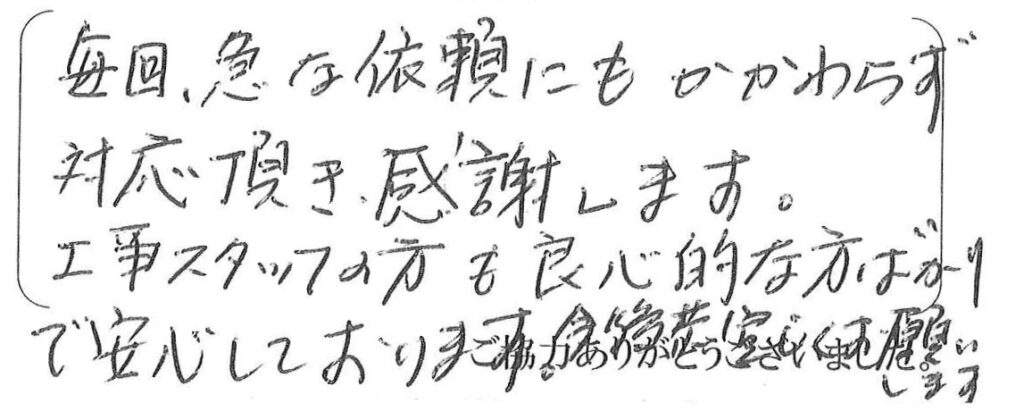 毎回、急な依頼にもかかわらず
対応頂き、感謝します。
工事スタッフの方も良心的な方ばかり
で安心しております。今後共宜しくお願い
します
ご協力ありがとうございました。